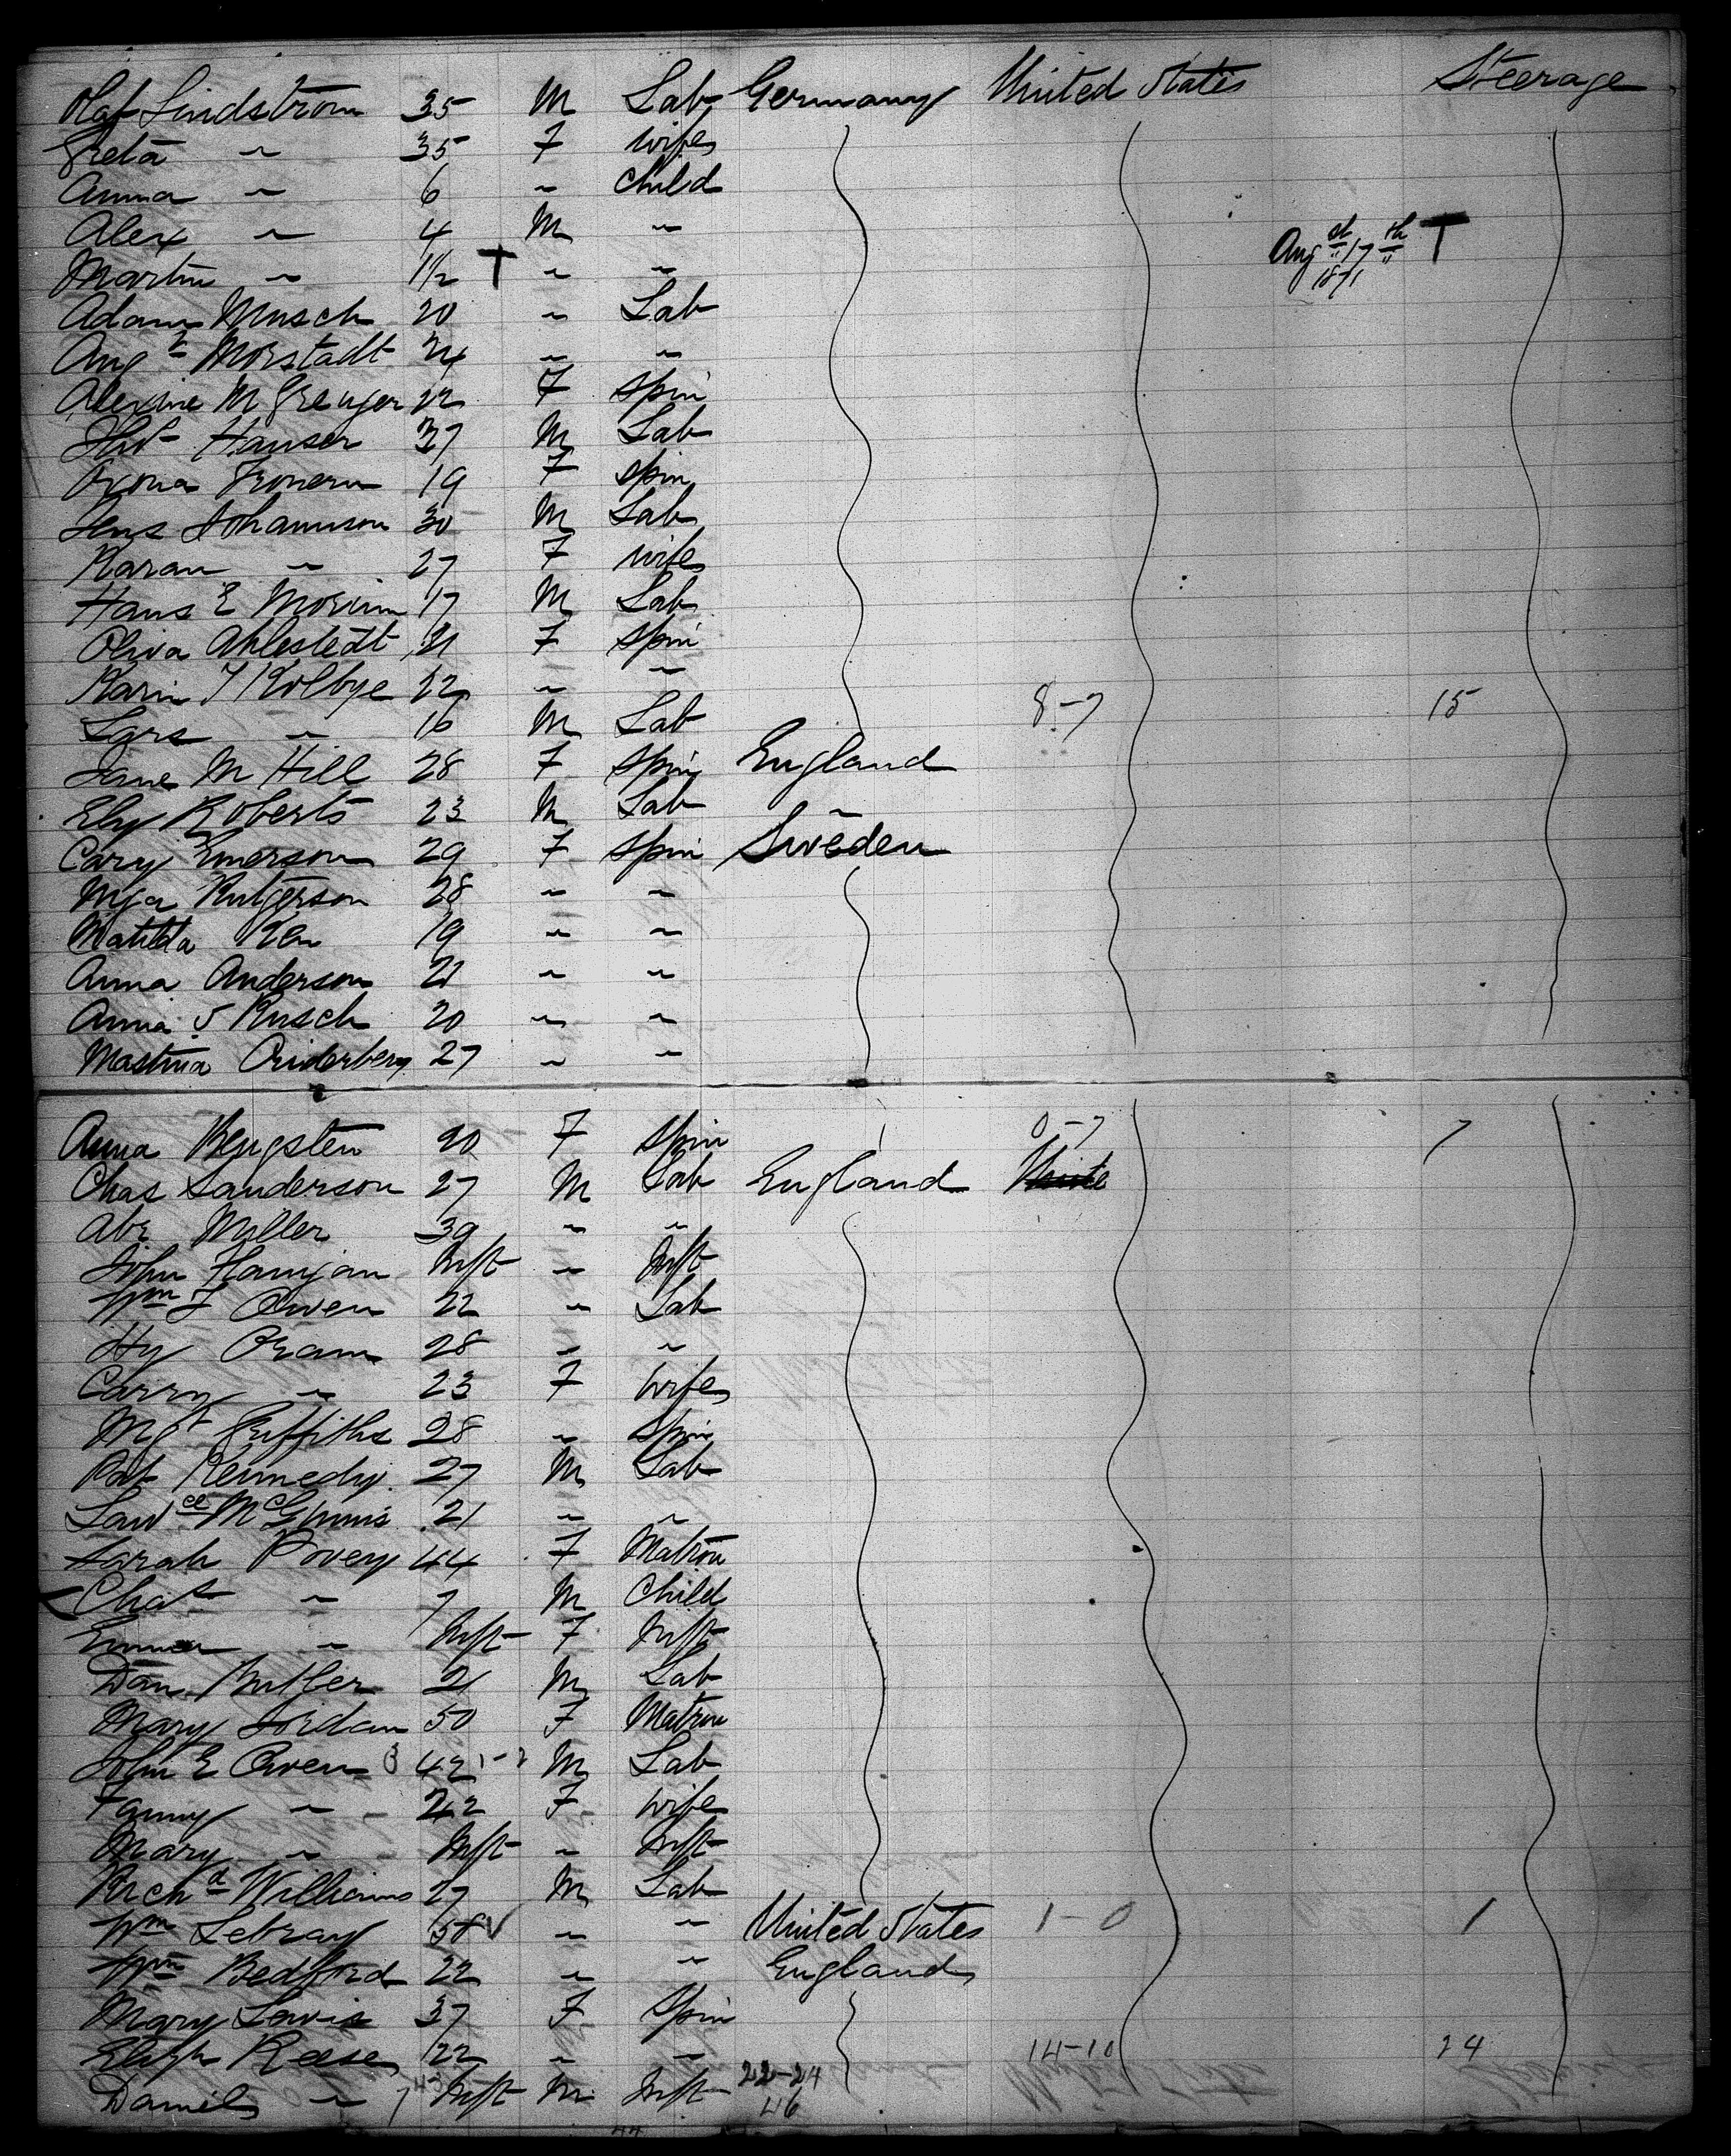 Olaf Lindstrom 35 M Lab Germany United States Steerage
Greta " 35 F wife
Anna " 6 " child
Alex " 4 M "
Martin " 1½ † " " Aug st 17 th † 1871
Adam Musch 20 " Lab
Augt Morstadt 24 " "
Alexine M 22 F Spin
Hauser 37 M Lab
19 F Spin
Jens Johannson 30 M Lab
Karan " 27 F wife
Hans E 17 M Lab
Oliva Ahlestedt 21 F Spin
Karin Kolbye 22 " "
Lars " 16 M Lab 8-7 15
Jane M Hill 28 F Spin England
Ely Roberts 23 M Lab "
Cary Emerson 29 F Spin Sweden
Rutgerson 28 " "
Matilda 19 " "
Anna Anderson 21 " "
Anna J Rusch 20 " "
27 " "
Anna Bengsten 20 F Spin 0-7 7
Chas Sanderson 27 M Lab England Unite
Abr Miller 39 " "
John Flanigan Inft " Inft
Wm J Owen 22 " Lab
Hy Oram 28 " "
Carry " 23 F Wife
Mgt Griffiths 28 " Spin
Pat Kennedy 27 M Lab
Lawce McGinnis 21 " "
Sarah Povey 44 F Matron
Chat " 7 M Child
Emma " Inft F Inft
Dan Butler 21 M Lab
Mary Jordan 50 F Matron
John E Owen 42 M Lab
Fanny " 22 F Wife
Mary " Inft " Inft
Richd Williams 27 M Lab
Wm Lebray 58 " " United States 1-0 1
Wm Bedford 22 " " England
Mary Lewis 37 F Spin
Elizth Reese 22 " " 14-10 24
Daniel " Inft M Inft 22-24
46
44